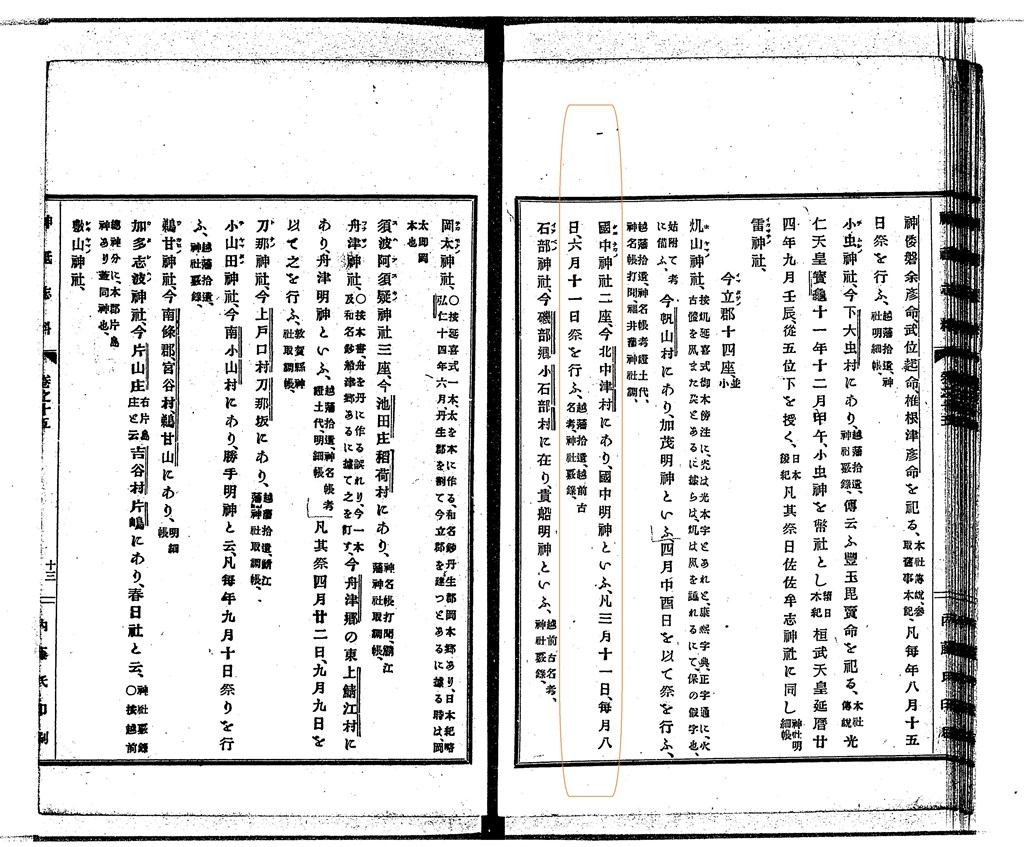 神倭磐余彦命、武位起命、椎根津彦命を祀る、本社傳說參取舊事本記、凡每年八月十五
日祭を行ふ、越藩拾遺、神社明細帳、
小虫神社、今下大虫村にあり、越藩拾遺、神社覈錄、傳云ふ豐玉毘賣命を祀る、本社傳說光
仁天皇寶龜十一年十二月甲午、小虫神を幣社とし續日本紀桓武天皇延曆廿
四年九月壬辰、從五位下を授く、日本後紀凡其祭日佐佐牟志神社に同し神社明細帳
雷神社、
今立郡十四座、並小
𡵆山神社、
今帆山村にあり、加茂明神といふ四月中酉日を以て祭を行ふ、
越藩拾遺、神名帳考證土代、神名帳打聞、福井藩神社調、
國中神社二座、今北中津村にあり、國中明神といふ、凡三月十一日、每月八
日、六月十一日祭を行ふ、越前古名考、神社覈錄、
石部神社、今磯部鄕小石部村に在り、貴船明神といふ、越前古名考、神社覈錄、
岡太神社、〇按延喜式一本、太を木に作る、和名鈔丹生郡岡本鄕あり、日本紀略弘仁十四年六月、丹生郡を割て今立郡を建つとあるに據る時は、岡太卽岡本也
須波阿須疑神社三座、今池田庄稻荷村にあり、神名帳打聞、鯖江藩神社取調帳、
舟津神社、〇按本書、舟を丹に作る誤れり今一本及和名鈔船津鄕あるに據て之を訂す、今舟津鄕の東上鯖江村に
あり、舟津明神といふ、越藩拾遺、神名帳考證土代、明細帳凡其祭四月廿二日、九月九日を
以て之を行ふ、敦賀縣神社取調帳、
刀那神社、今上戶口村刀那坂にあり、越藩拾遺、鯖江藩神社取調帳、
小山田神社、今南小山村にあり、勝手明神と云、凡每年九月十日祭りを行
ふ、越藩拾遺、神社覈錄、
鵜甘神社、今南條郡宮谷村鵜甘山にあり、明細帳
加多志波神社、今片山庄右片島庄と云吉谷村片嶋にあり、春日社と云、神社覈錄〇按越前
總神分に、本郡片島神あり蓋同神也、
敷山神社、
神祇志料 卷之十五 十三 內藤氏印刷